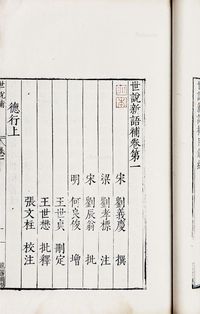 世說新語補卷第一
宋 劉義慶 撰
梁 劉孝標 注
宋 劉辰翁 批
明 何良俊 增
王世貞 刪定
王世懋 批釋
張文柱 校注
德行上
世說補
卷一